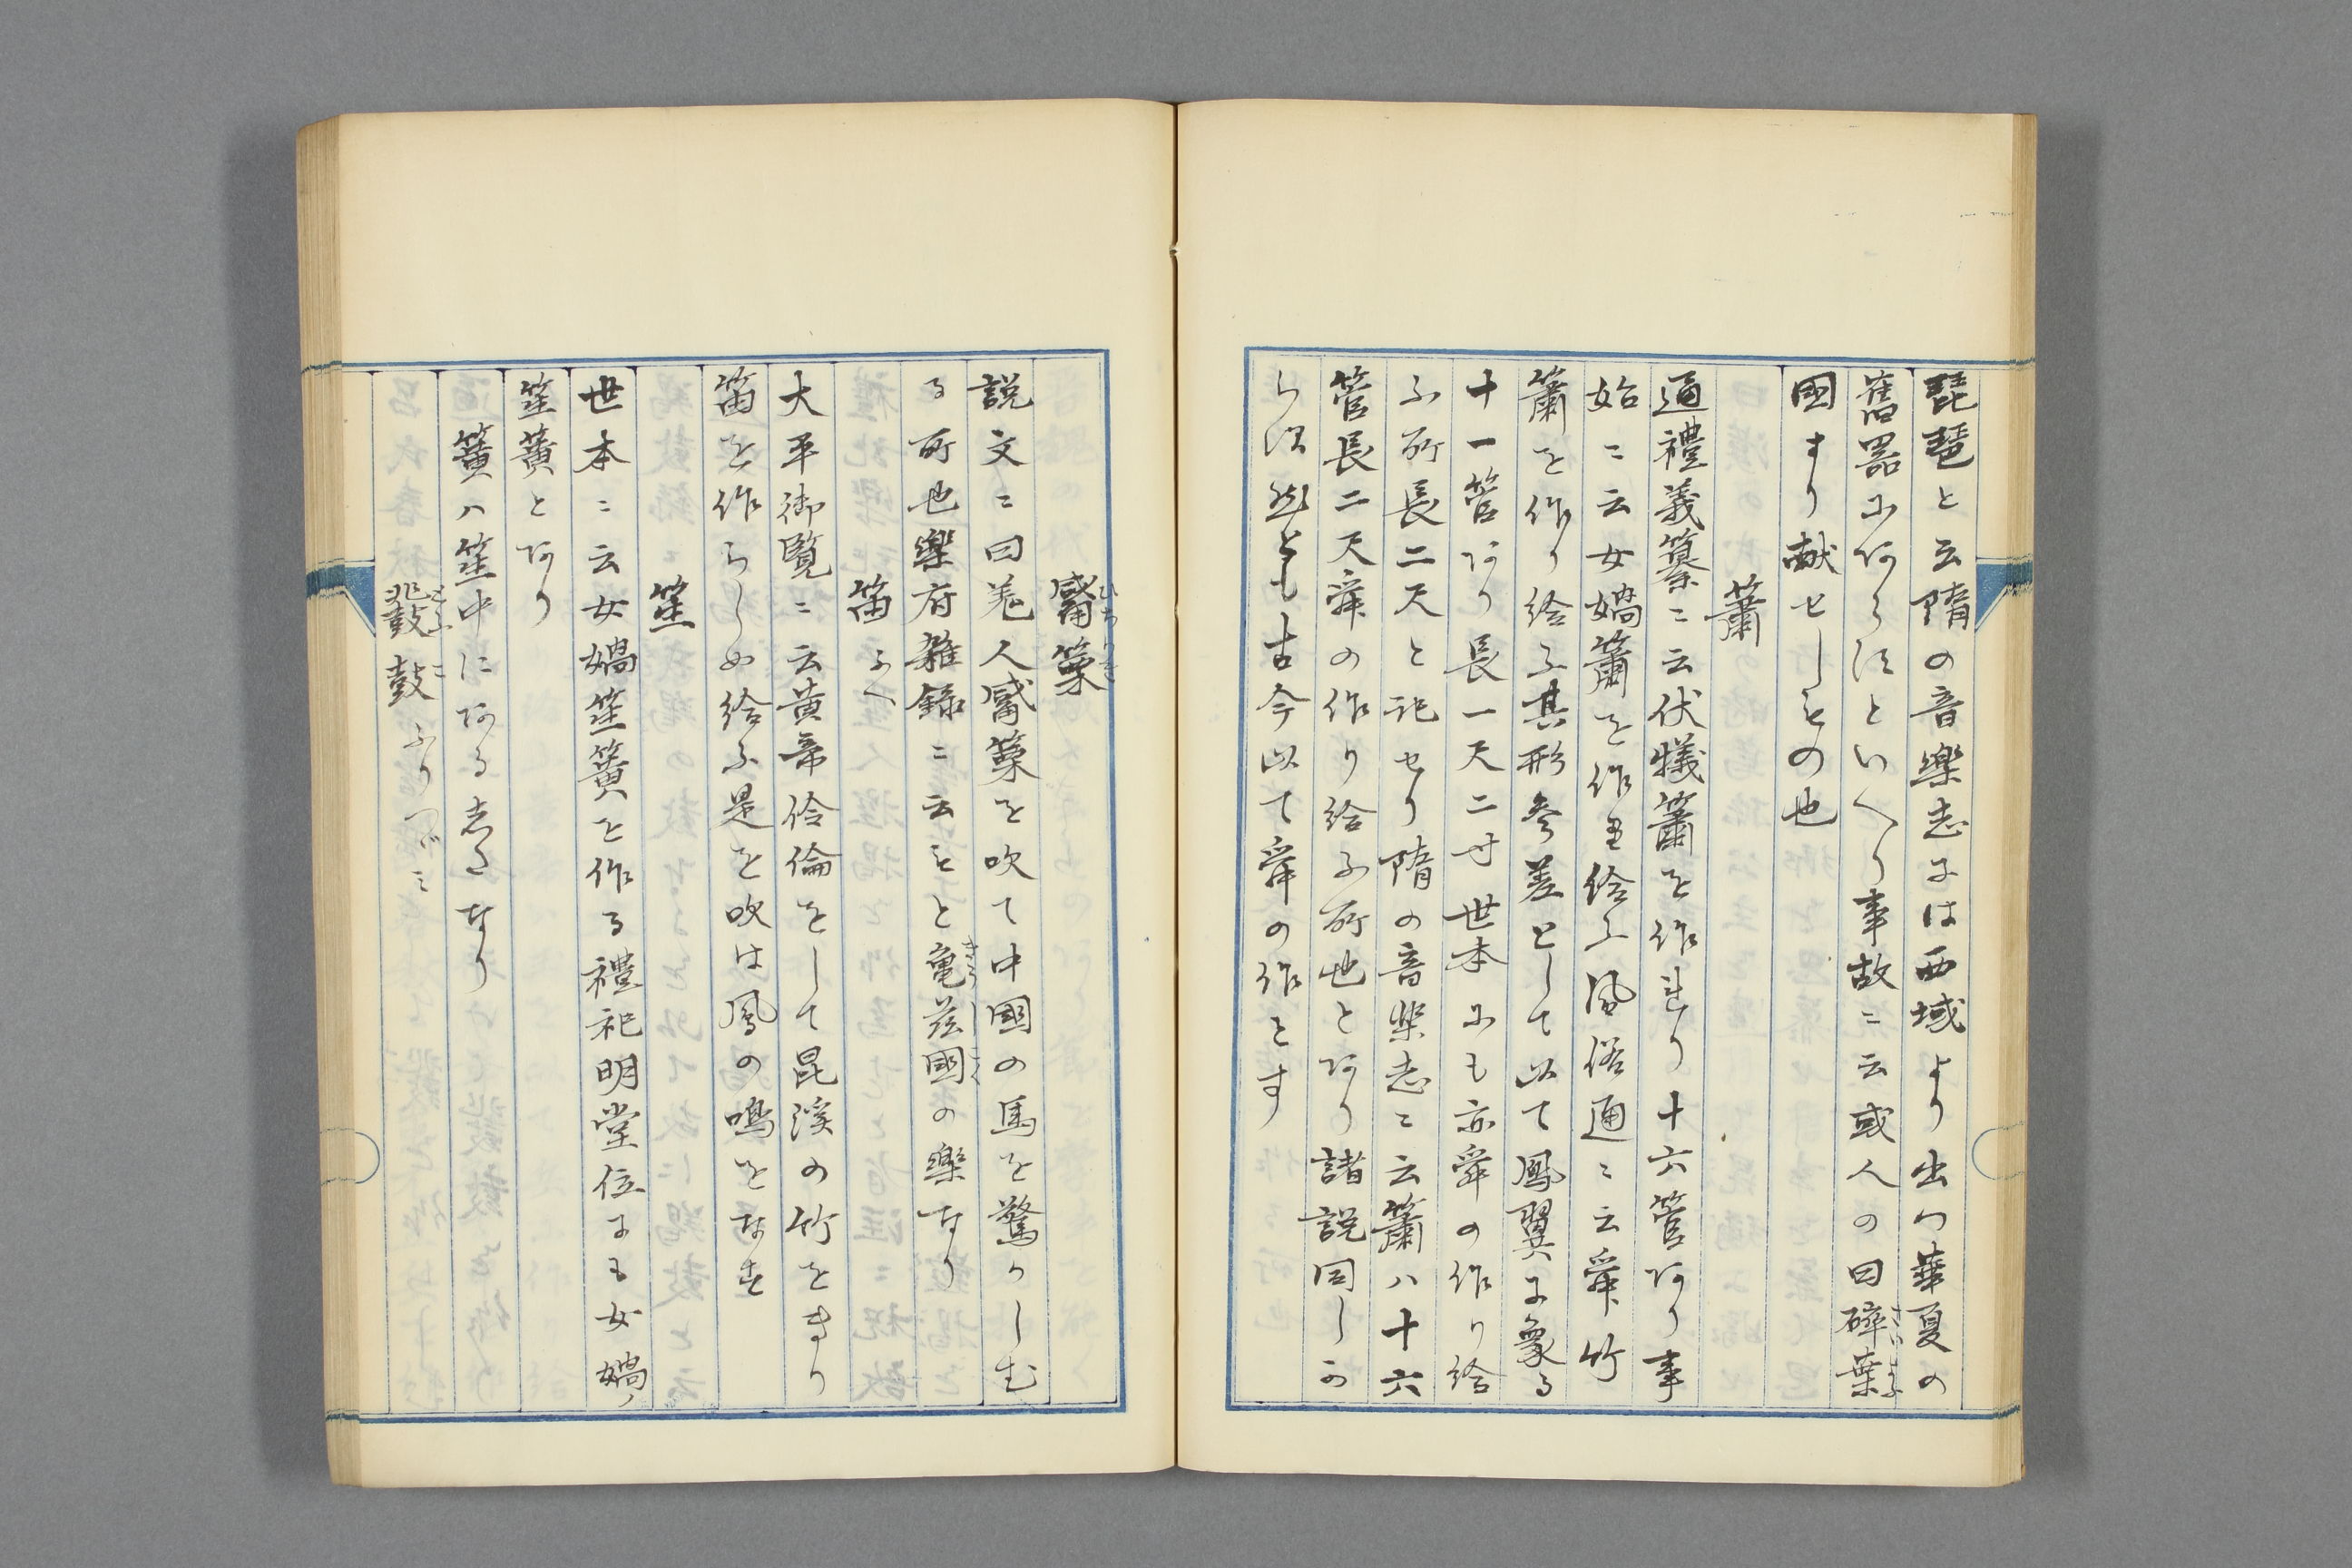 琵琶と云隋の音樂志には西域より出つ華夏の
舊器にあらすといへり事故ニ云或人の曰碎葉
國より献せしもの也
簫
通禮義纂ニ云伏犠簫を作れり十六管あり事
始ニ云女媧簫を作里給ふ風俗通ニ云舜竹
簫を作り給ふ其形参差として以て鳳翼に象る
十一管あり長一尺二寸世本にも亦舜の作り給
ふ所長二尺と記せり隋の音楽志ニ云簫ハ十六
管長二尺舜の作り給ふ所也とあり諸説同しか
らす然とも古今以て舜の作とす
觱篥 ひちりき
説文ニ曰羌人觱篥を吹て中國の馬を驚かしむ
る所也樂府雑録ニ云もと亀茲國の樂なり
笛 ふへ
大平御覧ニ云黄帝伶倫をして昆溪の竹をきり
笛を作らしめ給ふ是を吹は鳳の鳴をなす
笙
世本ニ云女媧笙簧を作る禮記明堂位にも女媧ノ
笙簧とあり
簧ハ笙中にある志たなり
鼗鼓 ふりつゞミ